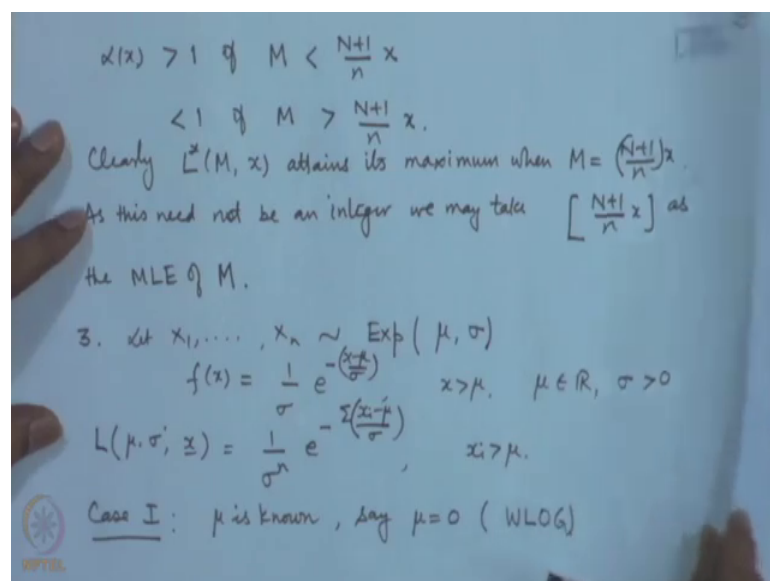 α(x) > 1 if M < N+1/n x
< 1 if M > N+1/n x.
Clearly L*(M, x) attains its maximum when M = (N+1/n)x.
As this need not be an integer we may take [N+1/n x] as
the MLE of M.
3. Let x1, ...., xn ~ Exp(μ, σ)
f(x) = 1/σ e^-(x-μ/σ) x>μ. μ∈ℝ, σ>0
L(μ, σ, x) = 1/σ^n e^-Σ(xi-μ/σ), xi>μ.
Case I: μ is known, say μ=0 (WLOG)
NPTEL